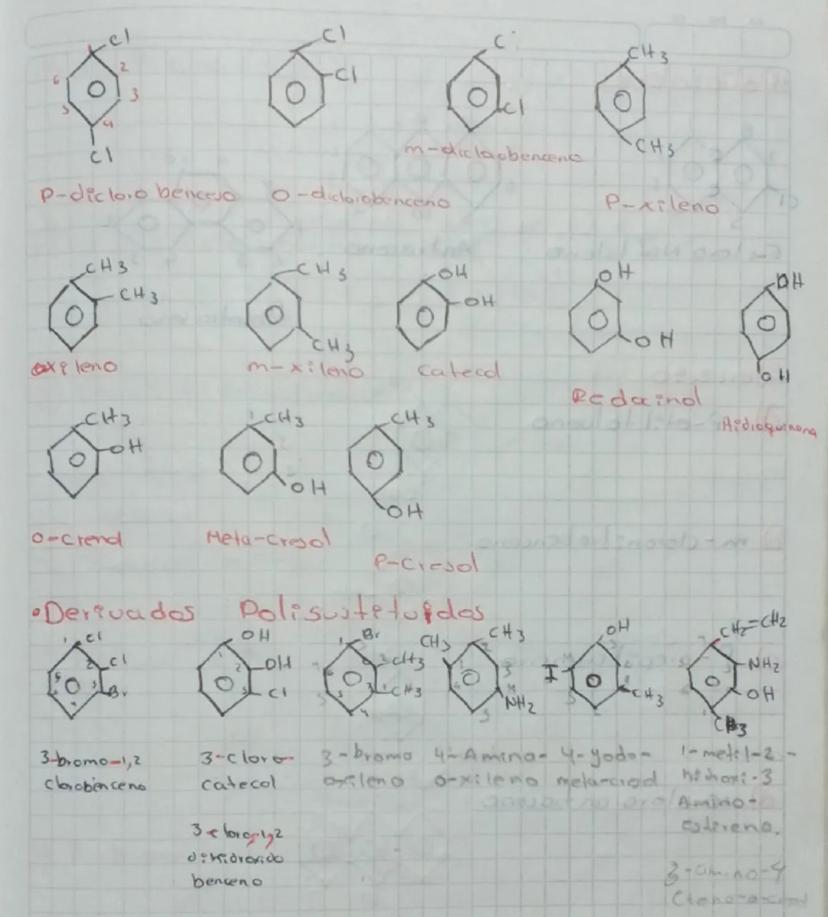 Cl
Cl
6 2
5 3
4
Cl
p-dicloro benceno
Cl
Cl
o-diclorobenceno
C
Cl
m-diclorobenceno
CH3
CH3
p-xileno
CH3
CH3
oxileno
CH3
CH3
m-xileno
OH
OH
Catecol
OH
OH
OH
OH
Hidroquinona
CH3
OH
CH3
OH
Meta-cresol
CH3
OH
p-cresol
•Derivados Polisustetuidos
Cl
Cl
Br
3-bromo-1,2
clorobenceno
OH
OH
Cl
3-cloro-
catecol
3-cloro-1,2
dihidroxido
benceno
Br
CH3
CH3
3-bromo
oxileno
CH3
CH3
NH2
4-Amino-
o-xileno
OH
I
CH3
4-yodo-
CH2=CH2
NH2
OH
CH3
1-metil-2-
Amino-
3-amino-4